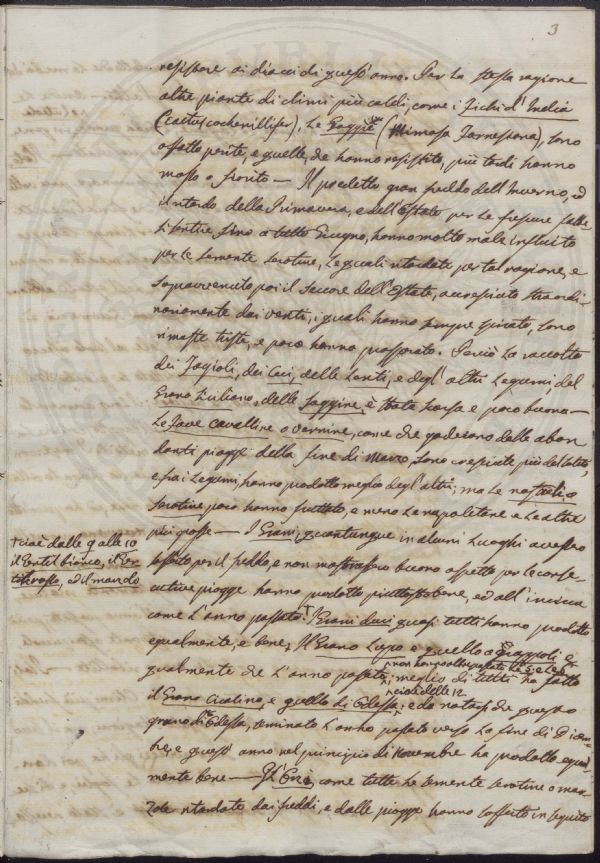 3
resistere ai diacci di quest'anno. Per la stessa ragione
altre piante di climi più caldi, come i Fichi d'India
(cactus cochenillifer), le Gaggie (Mimosa Farnesiana), sono
affatto perite, e quelle, che hanno resistito, più tardi hanno
messo o fiorito — Il predetto gran freddo dell'Inverno, ed
il ritardo della Primavera, e dell'Estate per le frescure fatte
si sentire fino a tutto Giugno, hanno molto male influito
per le semente serotine, le quali ritardate per tal ragione, e
sopravvenuto poi il seccore dell'Estate, accresciuto straordi-
nariamente dai venti, i quali hanno sempre spirato, sono
rimaste triste, e poco hanno prosperato. Perciò la raccolta
dei Fagioli, dei Ceci, delle Lenti, e degl'altri Legumi, del
Grano Siciliano, delle Saggine, è stata scarsa e poco buona —
Le Fave cavalline o vernine, come che goderono delle abon
danti piogge della fine di Marzo, sono cresciute più del solito,
e fra i Legumi, hanno prodotto meglio degl'altri; ma le nostrali o
serotine poco hanno fruttato, e meno le napoletane e le altre
più grosse — I Grani, quantunque in alcuni luoghi avessero
sofferto per il freddo, e non mostrassero buono aspetto per le conse-
cutive piogge hanno prodotto piuttosto bene, ed all'incirca
come l'anno passato. † I Grani duri quasi tutti hanno prodotto
egualmente, e bene; Il Grano Lupo e quello a Grappoli e-
gualmente che l'anno passato; meglio di tutti ha fatto
non hanno oltrepassate le 5 e le 6
il Grano Civitino, e quello di Odessa; e da notarsi che questo
cioè delle 12
grano di Odessa, seminato l'anno passato verso la fine di Dicem
bre, e quest'anno nel principio di Novembre ha prodotto egual-
mente bene — Gl'Orzi, come tutte le semente serotine o mar-
zole ritardate dai freddi, e dalle piogge hanno sofferto in seguito
† cioè dalle 9 alle 10
il Gentil bianco, il Gen-
til rosso, ed il mando